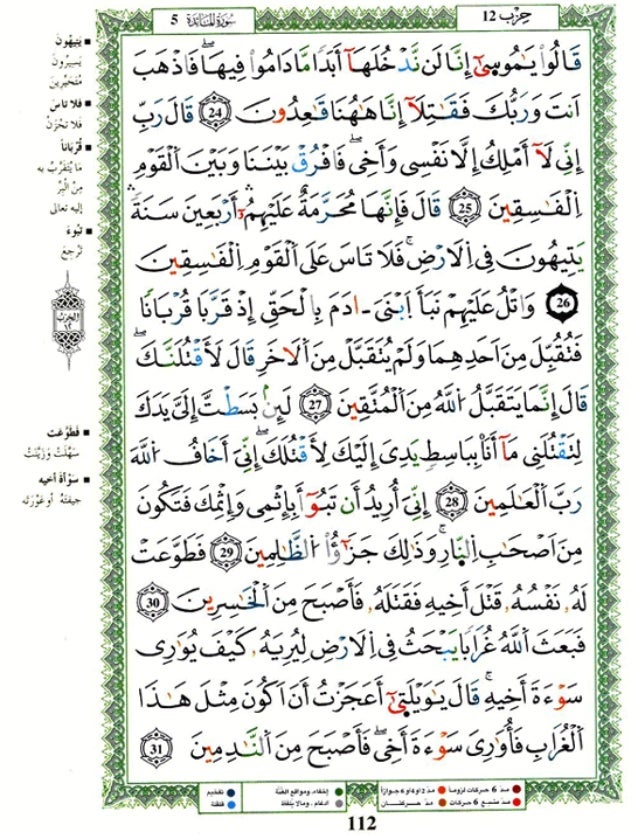 حِزْب 12
سُورَةُ المَائدَة 5
قَالُوا۟ يَٰمُوسَىٰٓ إِنَّا لَن نَّدْخُلَهَآ أَبَدٗا مَّا دَامُوا۟ فِيهَا فَاذْهَبَ
اَنتَ وَرَبُّكَ فَقَٰتِلَآ إِنَّا هَٰهُنَا قَٰعِدُونَۖ 24 قَالَ رَبِّ
إِنِّي لَآ أَمْلِكُ إِلَّا نَفْسِي وَأَخِي فَافْرُقْ بَيْنَنَا وَبَيْنَ اَلْقَوْمِ
اِلْفَٰسِقِينَۖ 25 قَالَ فَإِنَّهَا مُحَرَّمَةٌ عَلَيْهِمُۥٓ أَرْبَعِينَ سَنَةٗ
يَتِيهُونَ فِي اِلَارْضِۖ فَلَا تَاسَ عَلَى اَلْقَوْمِ اِلْفَٰسِقِينَۖ
26 وَاتْلُ عَلَيْهِمْ نَبَأَ اَبْنَيَ ءَادَمَ بِالْحَقِّ إِذْ قَرَّبَا قُرْبَانٗا
فَتُقُبِّلَ مِنَ اَحَدِهِمَا وَلَمْ يُتَقَبَّلْ مِنَ اَلَاخَرِ قَالَ لَأَقْتُلَنَّكَۖ
قَالَ إَنَّمَا يَتَقَبَّلُ اُللَّهُ مِنَ اَلْمُتَّقِينَۖ 27 لَئِنۢ بَسَطتَّ إِلَيَّ يَدَكَ
لِتَقْتُلَنِي مَآ أَنَا۠ بِبَاسِطٖ يَدِيَ إِلَيْكَ لِأَقْتُلَكَۖ إِنِّيَ أَخَافُ اُللَّهَ
رَبَّ اَلْعَٰلَمِينَۖ 28 إِنِّيَ أُرِيدُ أَن تَبُوٓأَ بِإِثْمِي وَإِثْمِكَ فَتَكُونَ
مِنَ اَصْحَٰبِ اِلنّ۪ارِۖ وَذَٰلِكَ جَزَٰٓؤُا۟ اُلظَّٰلِمِينَۖ 29 فَطَوَّعَتْ
لَهُۥ نَفْسُهُۥ قَتْلَ أَخِيهِ فَقَتَلَهُۥ فَأَصْبَحَ مِنَ اَلْخَٰسِرِينَۖ 30
فَبَعَثَ اَللَّهُ غُرَابٗا يَبْحَثُ فِي اِلَارْضِ لِيُرِيَهُۥ كَيْفَ يُوَٰرِي
سَوْءَةَ أَخِيهِۖ قَالَ يَٰوَيْلَتَىٰٓ أَعَجَزْتُ أَنَ اَكُونَ مِثْلَ هَٰذَا
اَلْغُرَابِ فَأُوَٰرِيَ سَوْءَةَ أَخِيۖ فَأَصْبَحَ مِنَ اَلنَّٰدِمِينَۖ 31
يَتِيهُونَ
يَسِيرُونَ
مُتَحَيِّرِينَ
فَلا تَاسَ
فَلا تَحْزَنْ
قُرْبَاناً
مَا يُتَقَرَّبُ به
مِنَ الْبِرِّ
إليه تعالى
تَبُوءَ
تَرْجِعَ
الحزب
١٢
فَطَوَّعَت
سَهَّلَتْ وَزَيَّنَتْ
سَوْأةَ أخيه
جِيفَتَهُ أو عَوْرَتَه
مدّ 6 حركات لزوماً
مدّ 2 أو 4 أو 6 جوازاً
مدّ مشبع 6 حركات
مدّ حركتان
إخفاء، ومواقع الغنّة
إدغام، وما لا يُلفظ
تفخيم
قلقلة
112